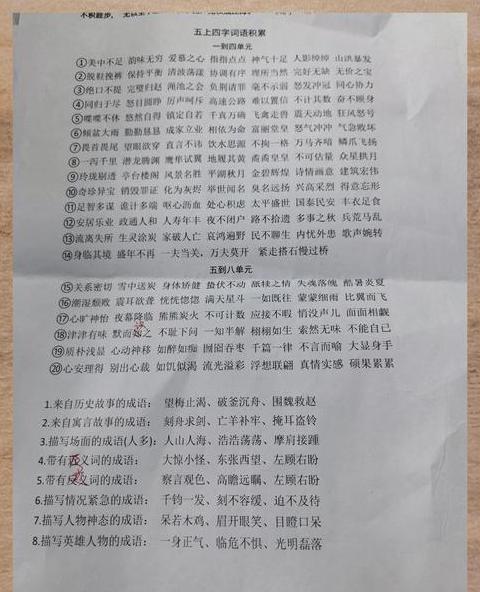 五上四字词语积累
一到四单元
①美中不足 韵味无穷 爱慕之心 指指点点 神气十足 人影绰绰 山洪暴发
②脱鞋挽裤 保持平衡 清波荡漾 协调有序 理所当然 完好无缺 无价之宝
③绝口不提 完璧归赵 渑池之会 负荆请罪 毫不示弱 怒发冲冠 同心协力
④同归于尽 怒目圆睁 厉声呵斥 高速公路 难以置信 不计其数 奋不顾身
⑤喋喋不休 悠然自得 镇定自若 千真万确 飞禽走兽 震天动地 狂风怒号
⑥倾盆大雨 勤勤恳恳 成家立业 相依为命 富丽堂皇 怒气冲冲 气急败坏
⑦畏首畏尾 望眼欲穿 直言不讳 饮水思源 不拘一格 万马齐喑 鳞爪飞扬
⑧一泻千里 潜龙腾渊 鹰隼试翼 地履其黄 矞矞皇皇 不可估量 众星拱月
⑨玲珑剔透 亭台楼阁 风景名胜 平湖秋月 金碧辉煌 诗情画意 建筑宏伟
⑩奇珍异宝 销毁罪证 化为灰烬 举世闻名 臭名远扬 兴高采烈 得意忘形
⑪足智多谋 诡计多端 呕心沥血 处心积虑 太平盛世 国泰民安 丰衣足食
⑫安居乐业 政通人和 人寿年丰 夜不闭户 路不拾遗 多事之秋 兵荒马乱
⑬流离失所 生灵涂炭 家破人亡 哀鸿遍野 民不聊生 内忧外患 歌声婉转
⑭身临其境 盛年不再 一夫当关，万夫莫开 紧走搭石慢过桥
五到八单元
⑮关系密切 雪中送炭 身体矫健 蛰伏不动 舐犊之情 失魂落魄 酷暑炎夏
⑯潮湿颓败 震耳欲聋 恍恍惚惚 满天星斗 一如既往 蒙蒙细雨 比翼而飞
⑰心旷神怡 夜幕降临 熊熊炭火 不可计数 应接不暇 悄没声儿 面面相觑
⑱津津有味 默而之 不耻下问 一知半解 栩栩如生 索然无味 不能自已
⑲质朴浅显 心动神移 如醉如痴 囫囵吞枣 千篇一律 不言而喻 大显身手
⑳心安理得 别出心裁 如饥似渴 流光溢彩 浮想联翩 真情实感 硕果累累
1.来自历史故事的成语： 望梅止渴、破釜沉舟、围魏救赵
2.来自寓言故事的成语： 刻舟求剑、亡羊补牢、掩耳盗铃
3.描写场面的成语(人多)： 人山人海、浩浩荡荡、摩肩接踵
4.带有反义词的成语： 大惊小怪、东张西望、左顾右盼
5.带有义词的成语： 察言观色、高瞻远瞩、左顾右盼
6.描写情况紧急的成语： 千钧一发、刻不容缓、迫不及待
7.描写人物神态的成语： 呆若木鸡、眉开眼笑、目瞪口呆
8.描写英雄人物的成语： 一身正气、临危不惧、光明磊落